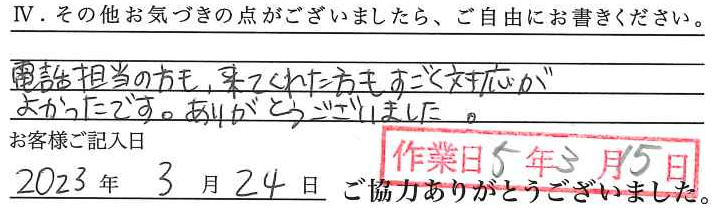 Ⅳ．その他お気づきの点がございましたら、ご自由にお書きください。
電話担当の方も、来てくれた方もすごく対応が
よかったです。ありがとうございました。
お客様ご記入日
作業日5年3月15日
2023年3月24日 ご協力ありがとうございました。